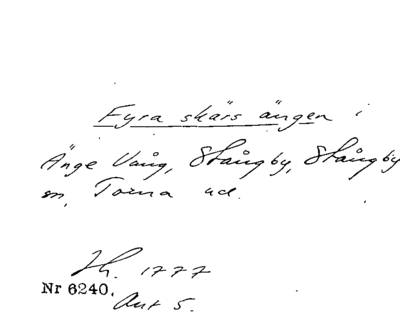 Fyra skärs ängen i
Änge Vång, Stångby, Stångby
sn, Torna hd.
Jh. 1777
Nr 6240.
Akt 5.